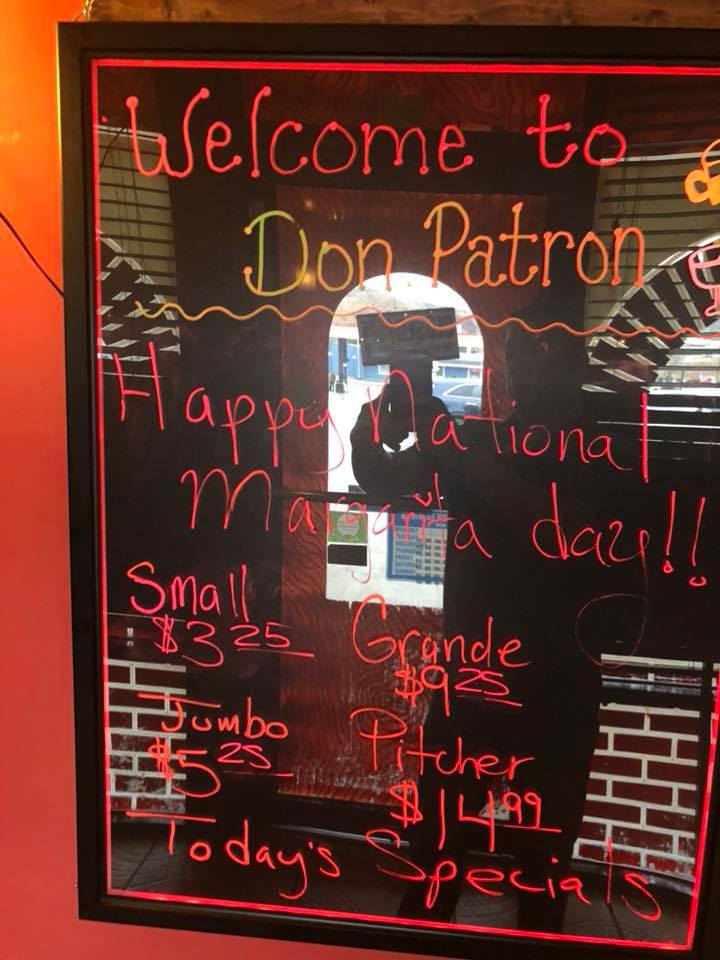 Welcome to
Don Patron
Happy National
Margarita day!!
Small
$3 25
Grande
$9 25
Jumbo
$5 25
Pitcher
$14 99
Today's Specials